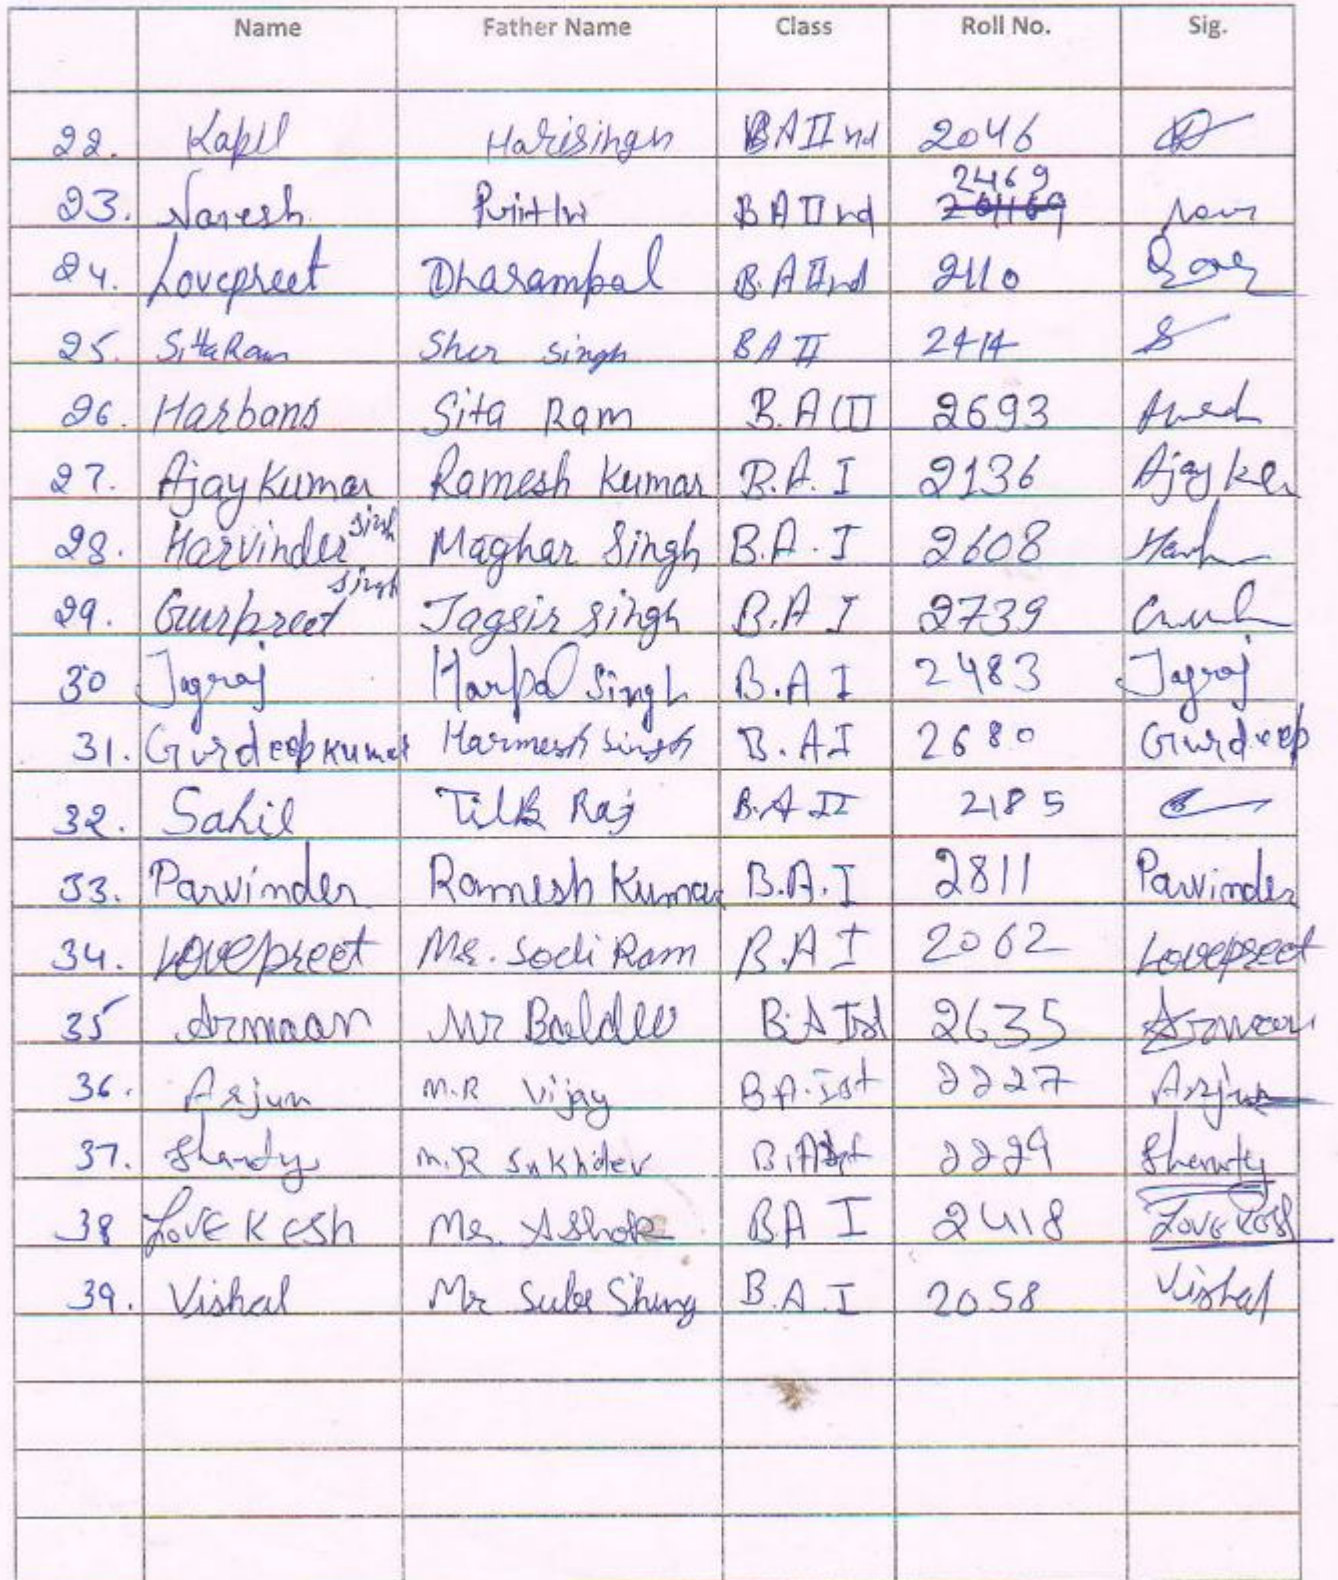 Name Father Name Class Roll No. Sig.
22. Kapil Harisingh BA IInd 2046
23. Naresh Prithvi BA IInd 2469
24. Lovepreet Dharampal B.A IInd 2110
25. Sitta Ram Sher singh BA II 2414
26. Harbans Sita Ram B.A III 2693
27. Ajay Kumar Ramesh Kumar B.A. I 2136 Ajay
28. Harvinder Singh Maghar Singh B.A. I 2608
29. Gurpreet Singh Jagsir Singh B.A I 2739
30 Jagraj Harpal Singh B.A I 2483 Jagraj
31. Gurdeep Kumar Harmesh Singh B.A I 2680 Gurdeep
32. Sahil Tilk Raj B.A II 2185
33. Parvinder Ramesh Kumar B.A. I 2811 Parvinder
34. Lovepreet Mr. Sodi Ram B.A I 2062 Lovepreet
35 Armaan Mr Baldev B.A Ist 2635 Armaan
36. Arjun M.R Vijay B.A. Ist 2227 Arjun
37. Shanty M.R Sukhdev B.A Ist 2229 Shanty
38 LovE K Esh Mr. Ashok BA I 2418 Love Kesh
39. Vishal Mr Sube Shing B.A I 2058 Vishal